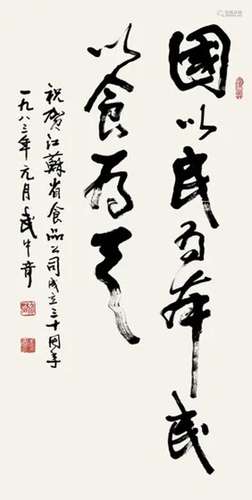 國以民为本民
以食为天
祝贺江蘇省食品公司成立三十周年
一九八三年元月武中奇